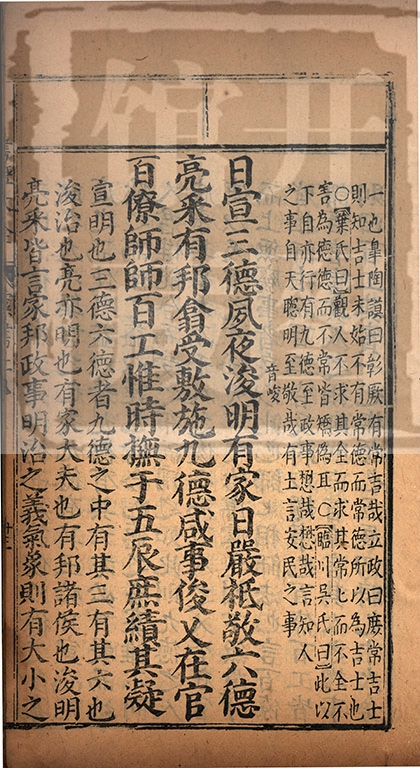 一也皐陶謨曰彰厥有常吉哉立政曰庶常吉士
則知吉士未始不有常德而常德所以為吉士也
○葉氏曰觀人不求其全而求其常七而不全不
害為德德而不常皆矯偽耳○臨川吳氏曰此以
下自亦行有九德至政事懋哉懋哉言知人
之事自天聰明至敬哉有土言安民之事
日宣三德夙夜浚明有家日嚴祗敬六德
音峻
亮采有邦翕受敷施九德咸事俊乂在官
百僚師師百工惟時撫于五辰庶績其凝
宣明也三德六德者九德之中有其三有其六也
浚治也亮亦明也有家大夫也有邦諸侯也浚明
亮采皆言家邦政事明治之義氣象則有大小之